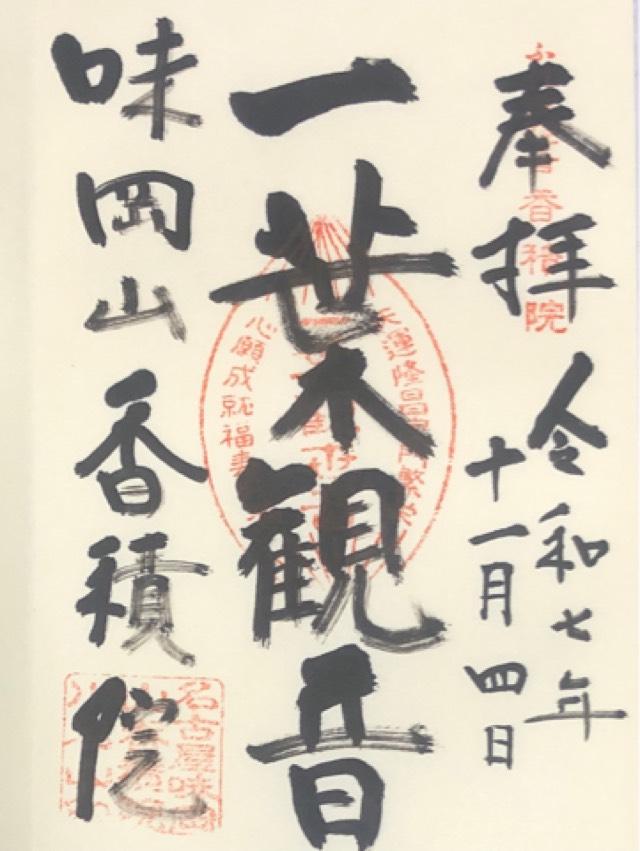 奉拝
香積院
令和七年
十一月四日
一葉観音
運隆昌家門繁栄
心願成就福寿
味岡山香積院
名古屋味岡